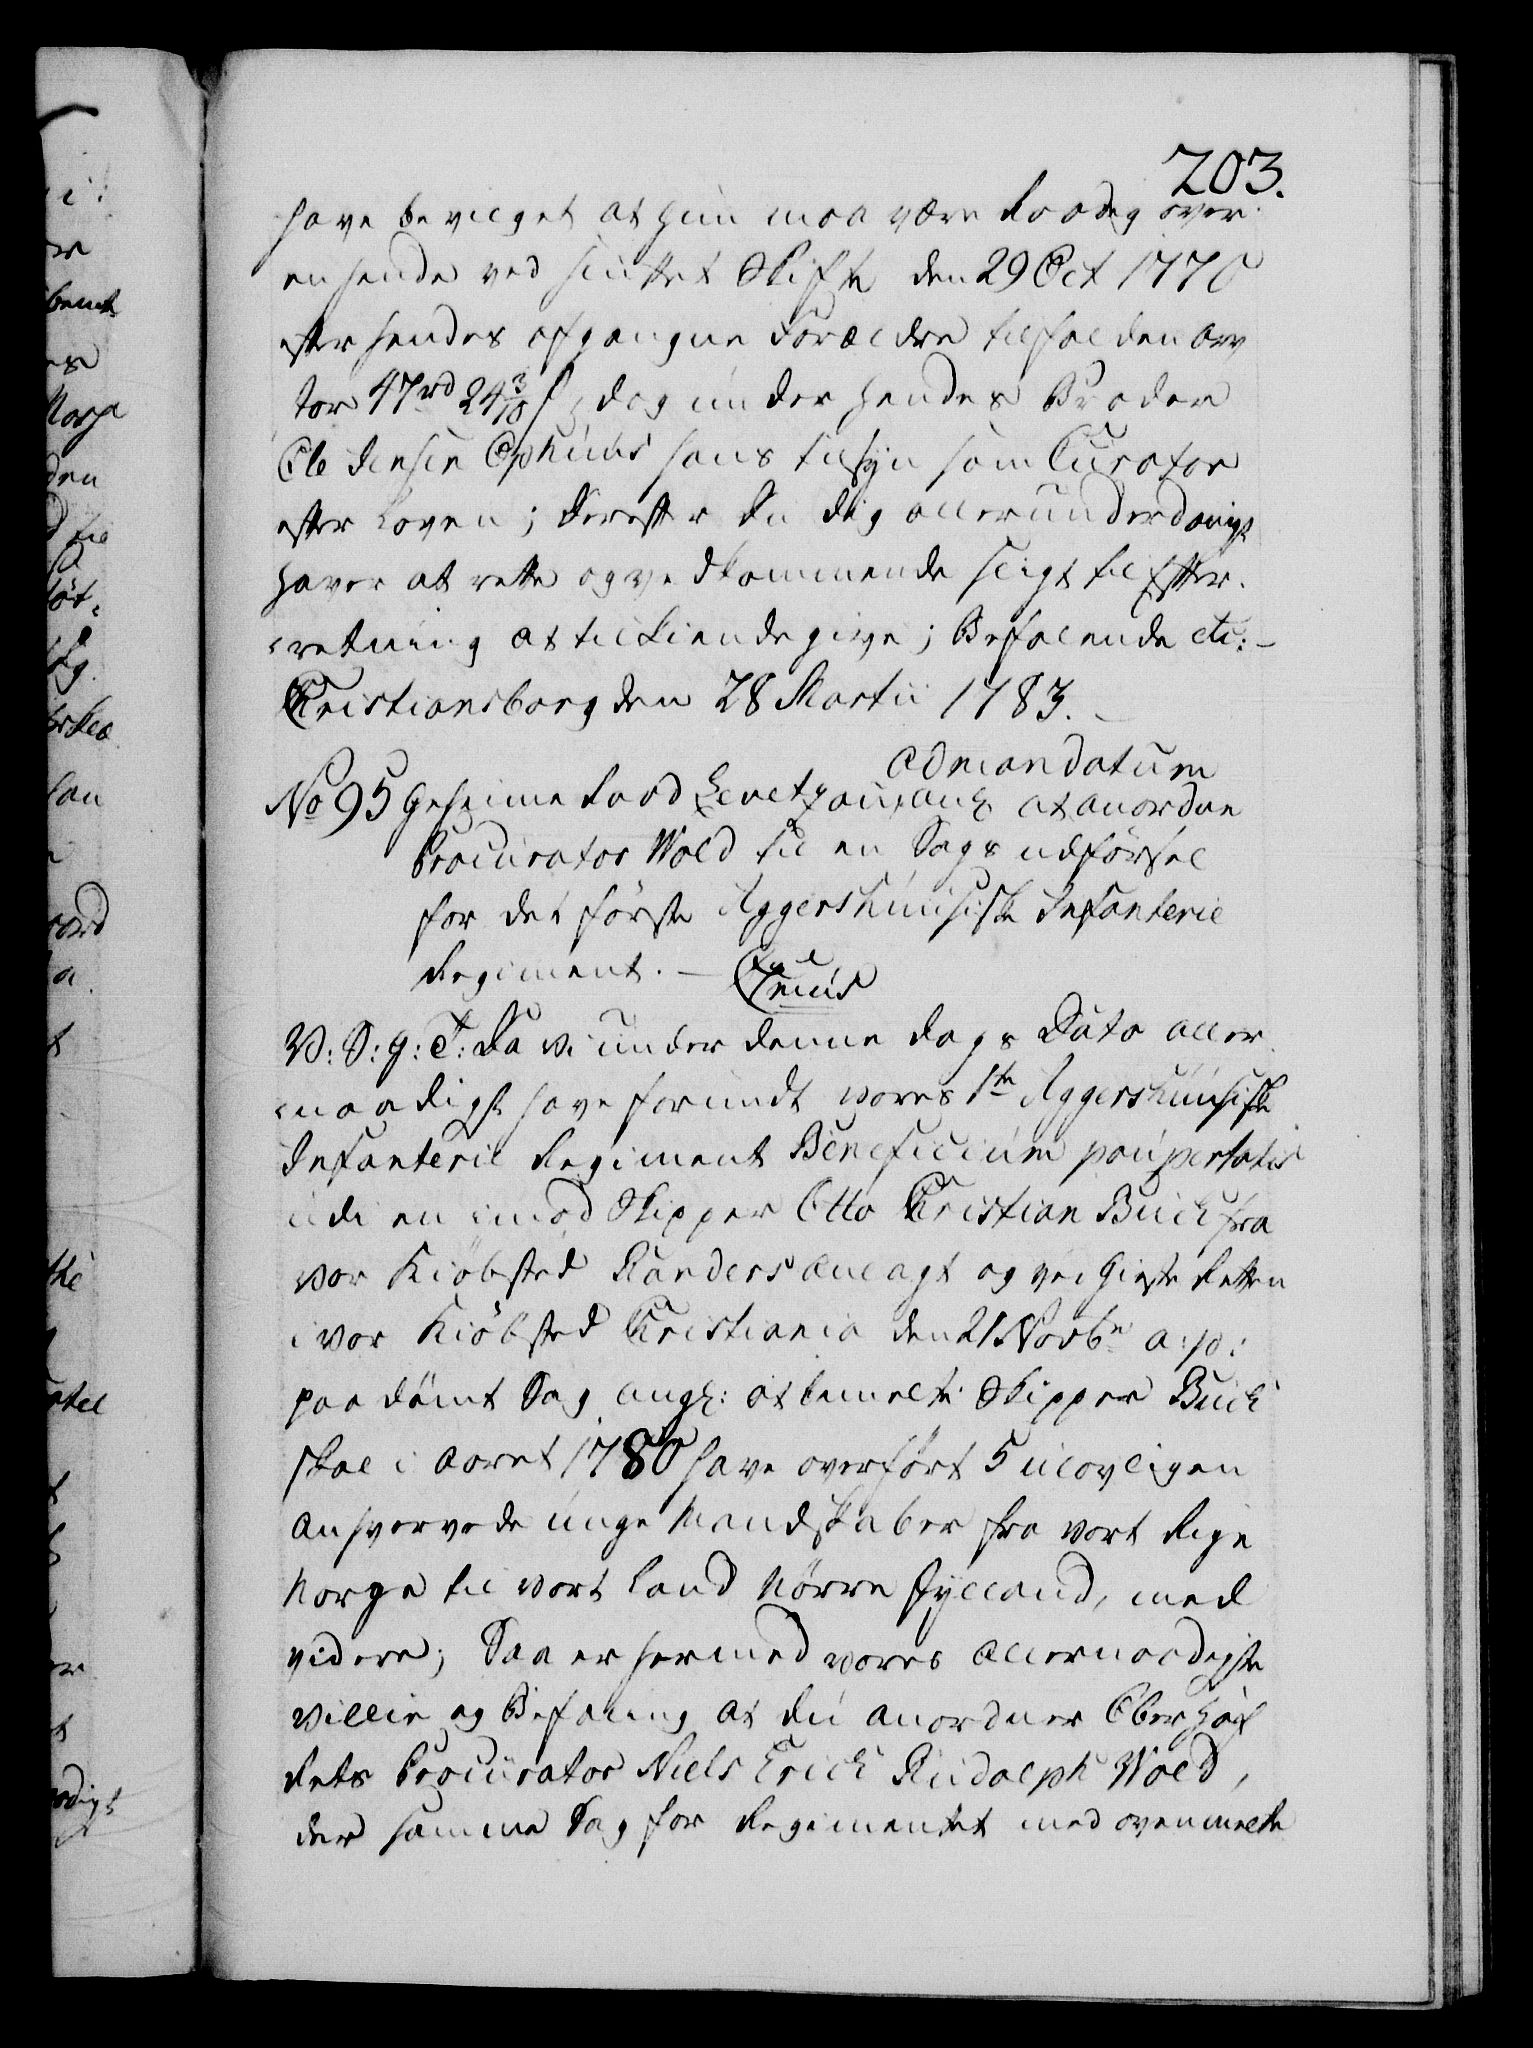 203.
have bevilget at hun maa være Raadig over
en hende ved sluttet Skifte den 29 Oct 1770
efter hendes afgangne Forældre tilfalden Arv
stor 47 rd 24 3/10 s, dog under hendes Broder
Ole Jensen Ophuus hans tilsyn som Curator
efter Loven; Derefter Du dig allerunderdanigst
haver at rette og vedkommende sligt til Efter-
retning at tilkiendegive; Befalende etc: –
Christiansborg den 28 Martii 1783. –
ad mandatum
No 95 Geheime Raad Levetzau, ang at anordne
Procurator Wold til en Sags udförsel
for det förste Aggershuusiske Infanterie
Regiment. –
V: S: G: T: Da vi under denne Dags Dato aller-
naadigst have forundt vores 1te Aggershuusiske
Infanterie Regiment Beneficium paupertatis
udi en imod Skipper Otto Christian Buch fra
vor Kiöbsted Randers anlagt og ved Gieste Retten
i vor Kiöbsted Christiania den 21 Novbr a: p:
paadömt Sag ang: at bemelte Skipper Buch
skal i Aaret 1780 have overfört 5 ulovligen
anhvervede unge Mandskaber fra vort Rige
Norge til vort Land Nörre Jylland, med
videre; Saa er hermed vores allernaadigste
villie og Befaling at du anordner Oberhof
Rets Procurator Niels Erich Rudolph Wold,
der samme Sag for Regimentet med ovenmelte